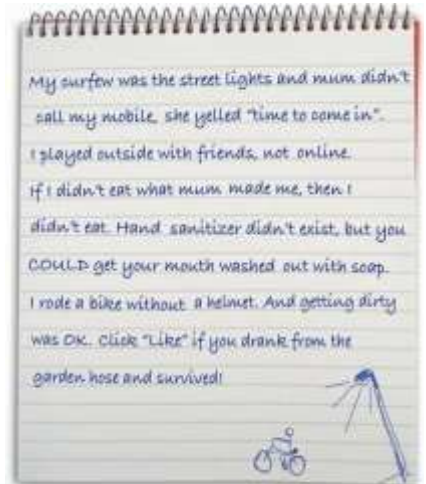 My curfew was the street lights and mum didn't
call my mobile, she yelled "time to come in".
I played outside with friends, not online.
If I didn't eat what mum made me, then I
didn't eat. Hand sanitizer didn't exist, but you
COULD get your mouth washed out with soap.
I rode a bike without a helmet. And getting dirty
was OK. Click "Like" if you drank from the
garden hose and survived!